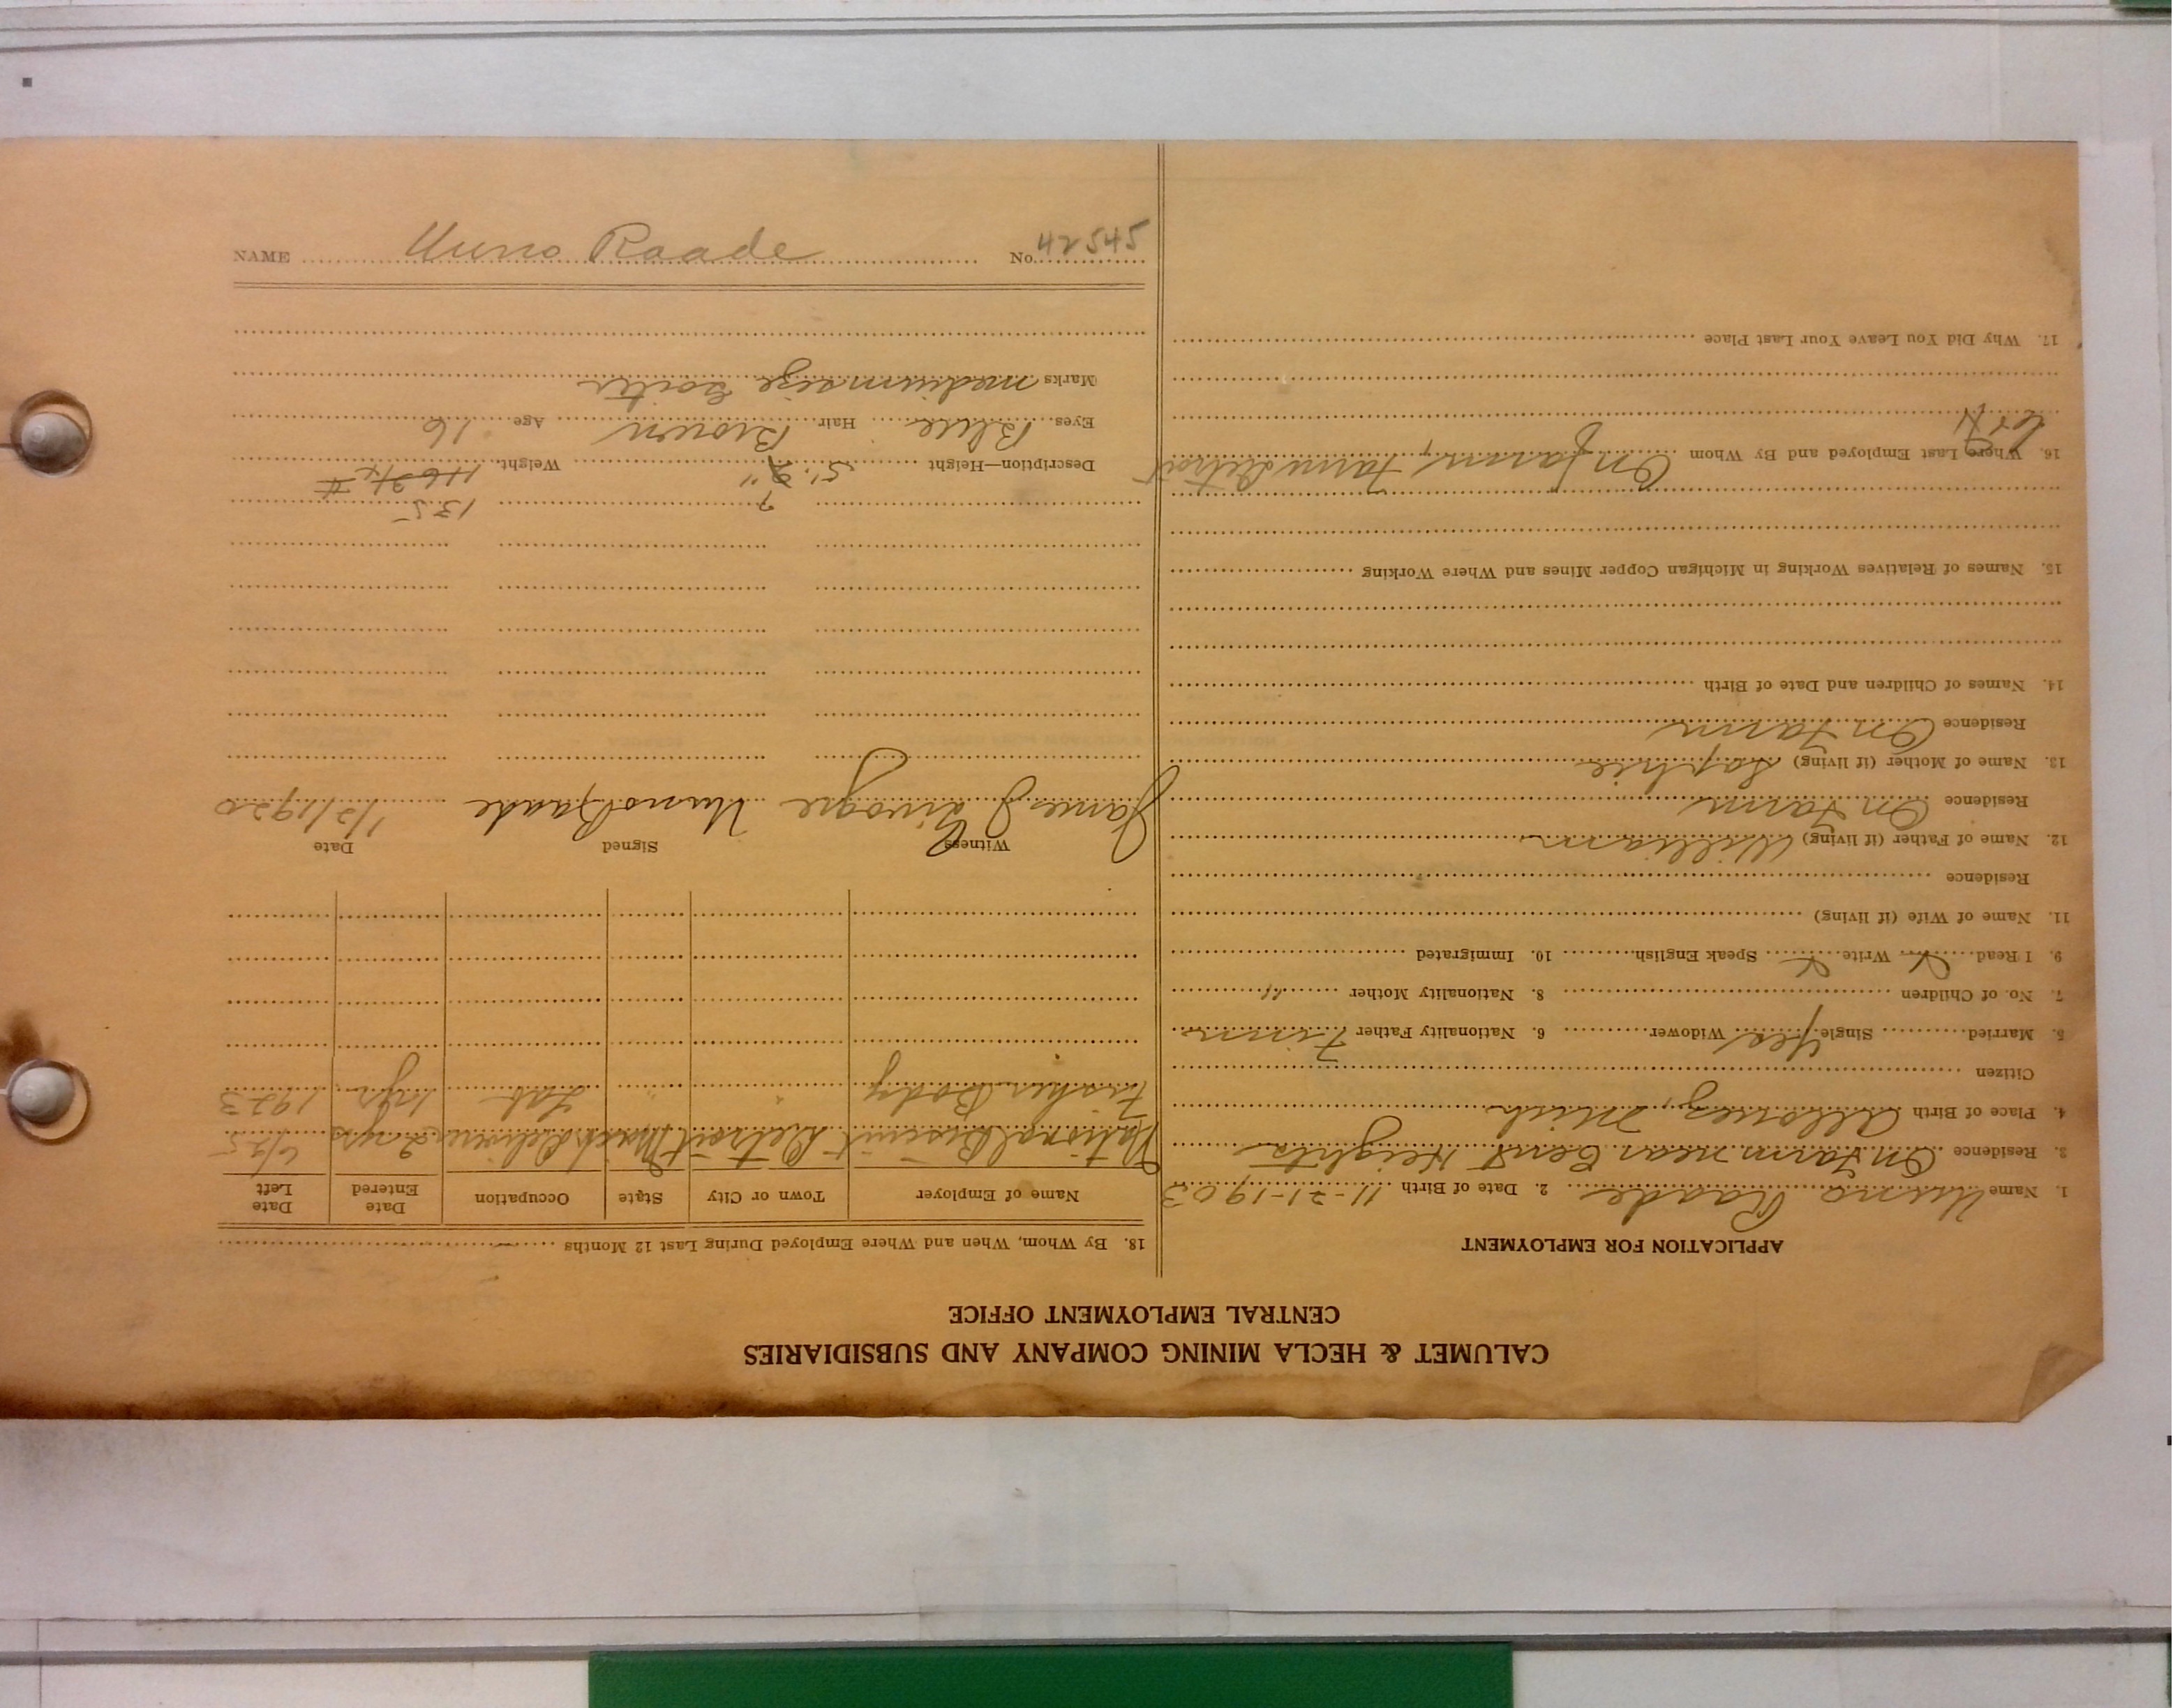 CALUMET & HECLA MINING COMPANY AND SUBSIDIARIES
CENTRAL EMPLOYMENT OFFICE
APPLICATION FOR EMPLOYMENT
1. Name Uuno Raade 2. Date of Birth 11-21-1903
3. Residence On Farm near Bent Heights
4. Place of Birth Allouez, Mich
Citizen
5. Married Single Yes Widower 6. Nationality Father Finn
7. No. of Children 8. Nationality Mother "
9. I Read Write Speak English 10. Immigrated
11. Name of Wife (if living)
Residence
12. Name of Father (if living) William
Residence On Farm
13. Name of Mother (if living) Sophie
Residence On Farm
14. Names of Children and Date of Birth
15. Names of Relatives Working in Michigan Copper Mines and Where Working
16. Where Last Employed and By Whom On farm, Farm Detroit
17. Why Did You Leave Your Last Place
18. By Whom, When and Where Employed During Last 12 Months
Name of Employer Town or City State Occupation Date Entered Date Left
National Biscuit Detroit Mich 2 yrs 6/25
Fisher Body " " Lab 1 yr 1923
Witness Signed Date
James J Uuno Raade 1/2/1920
7 135
Description—Height 5' 2" Weight
Eyes Blue Hair Brown Age 16
Marks medium size Goiter
NAME Uuno Raade No. 42545